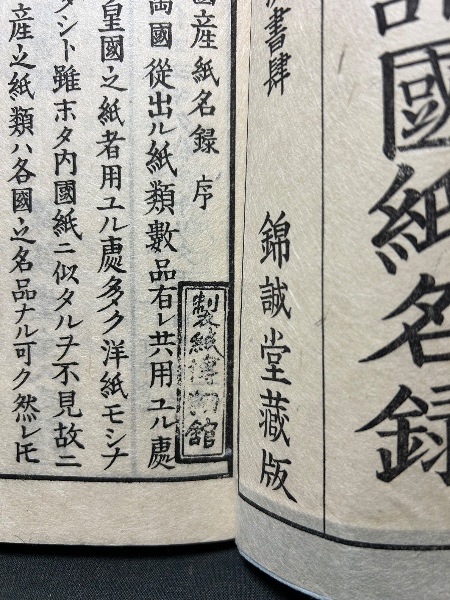 國紙名録
書肆
錦誠堂藏版
産紙名録 序
國從出ル紙類數品有レ共用ユル處
皇國之紙者用ユル處多ク洋紙モシナ
タシト雖ホタ内國紙ニ似タルヲ不見故ニ
産之紙類ハ各國之名品ナル可ク然レ𪜈
製紙博物館